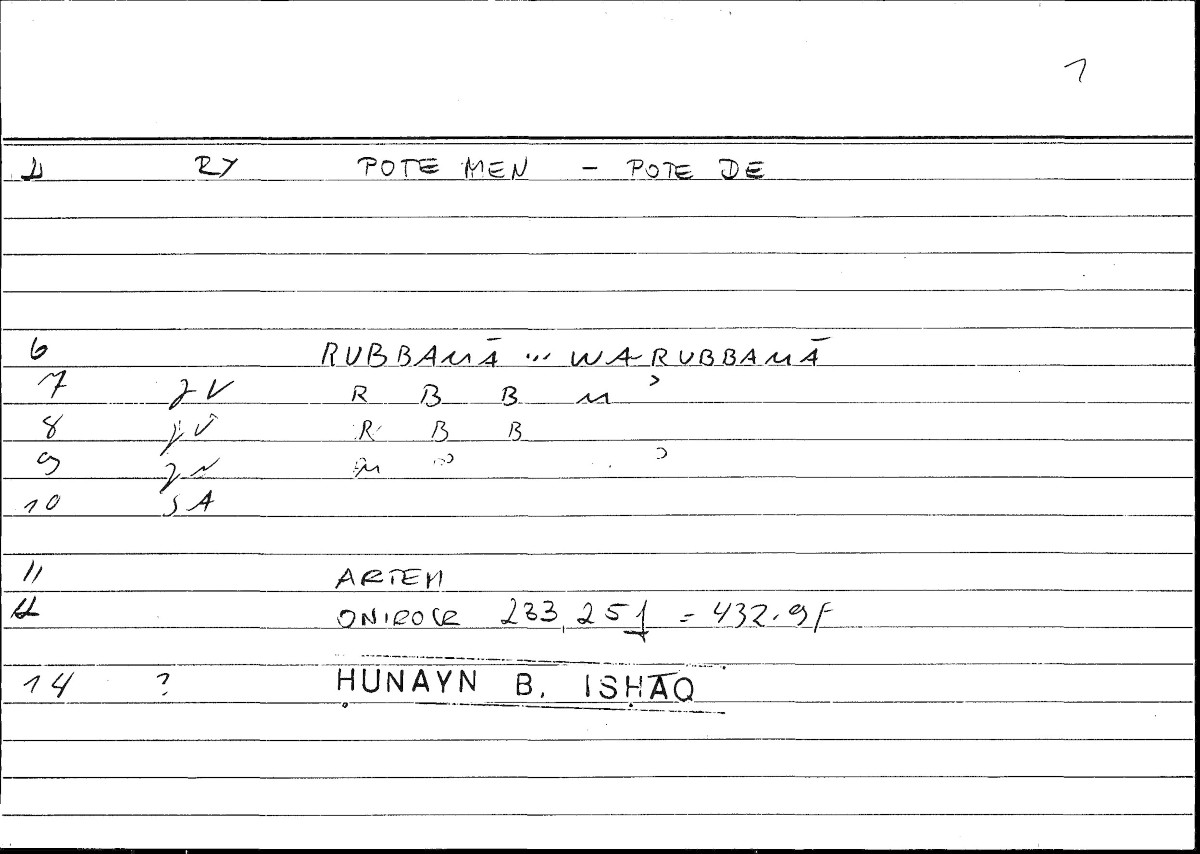 1
1 RY POTE MEN – POTE DE
6 RUBBAMĀ ... WA-RUBBAMĀ
7 JV R B B M ʾ
8 JV R B B
9 JN M ʾ
10 SA
11 ARTEM
12 ONIROCR 233,251 = 432.9F
14 ? ḤUNAYN B. ISḤĀQ